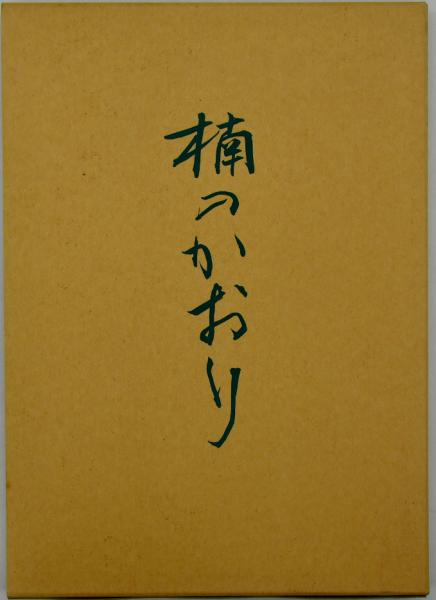 楠のかおり